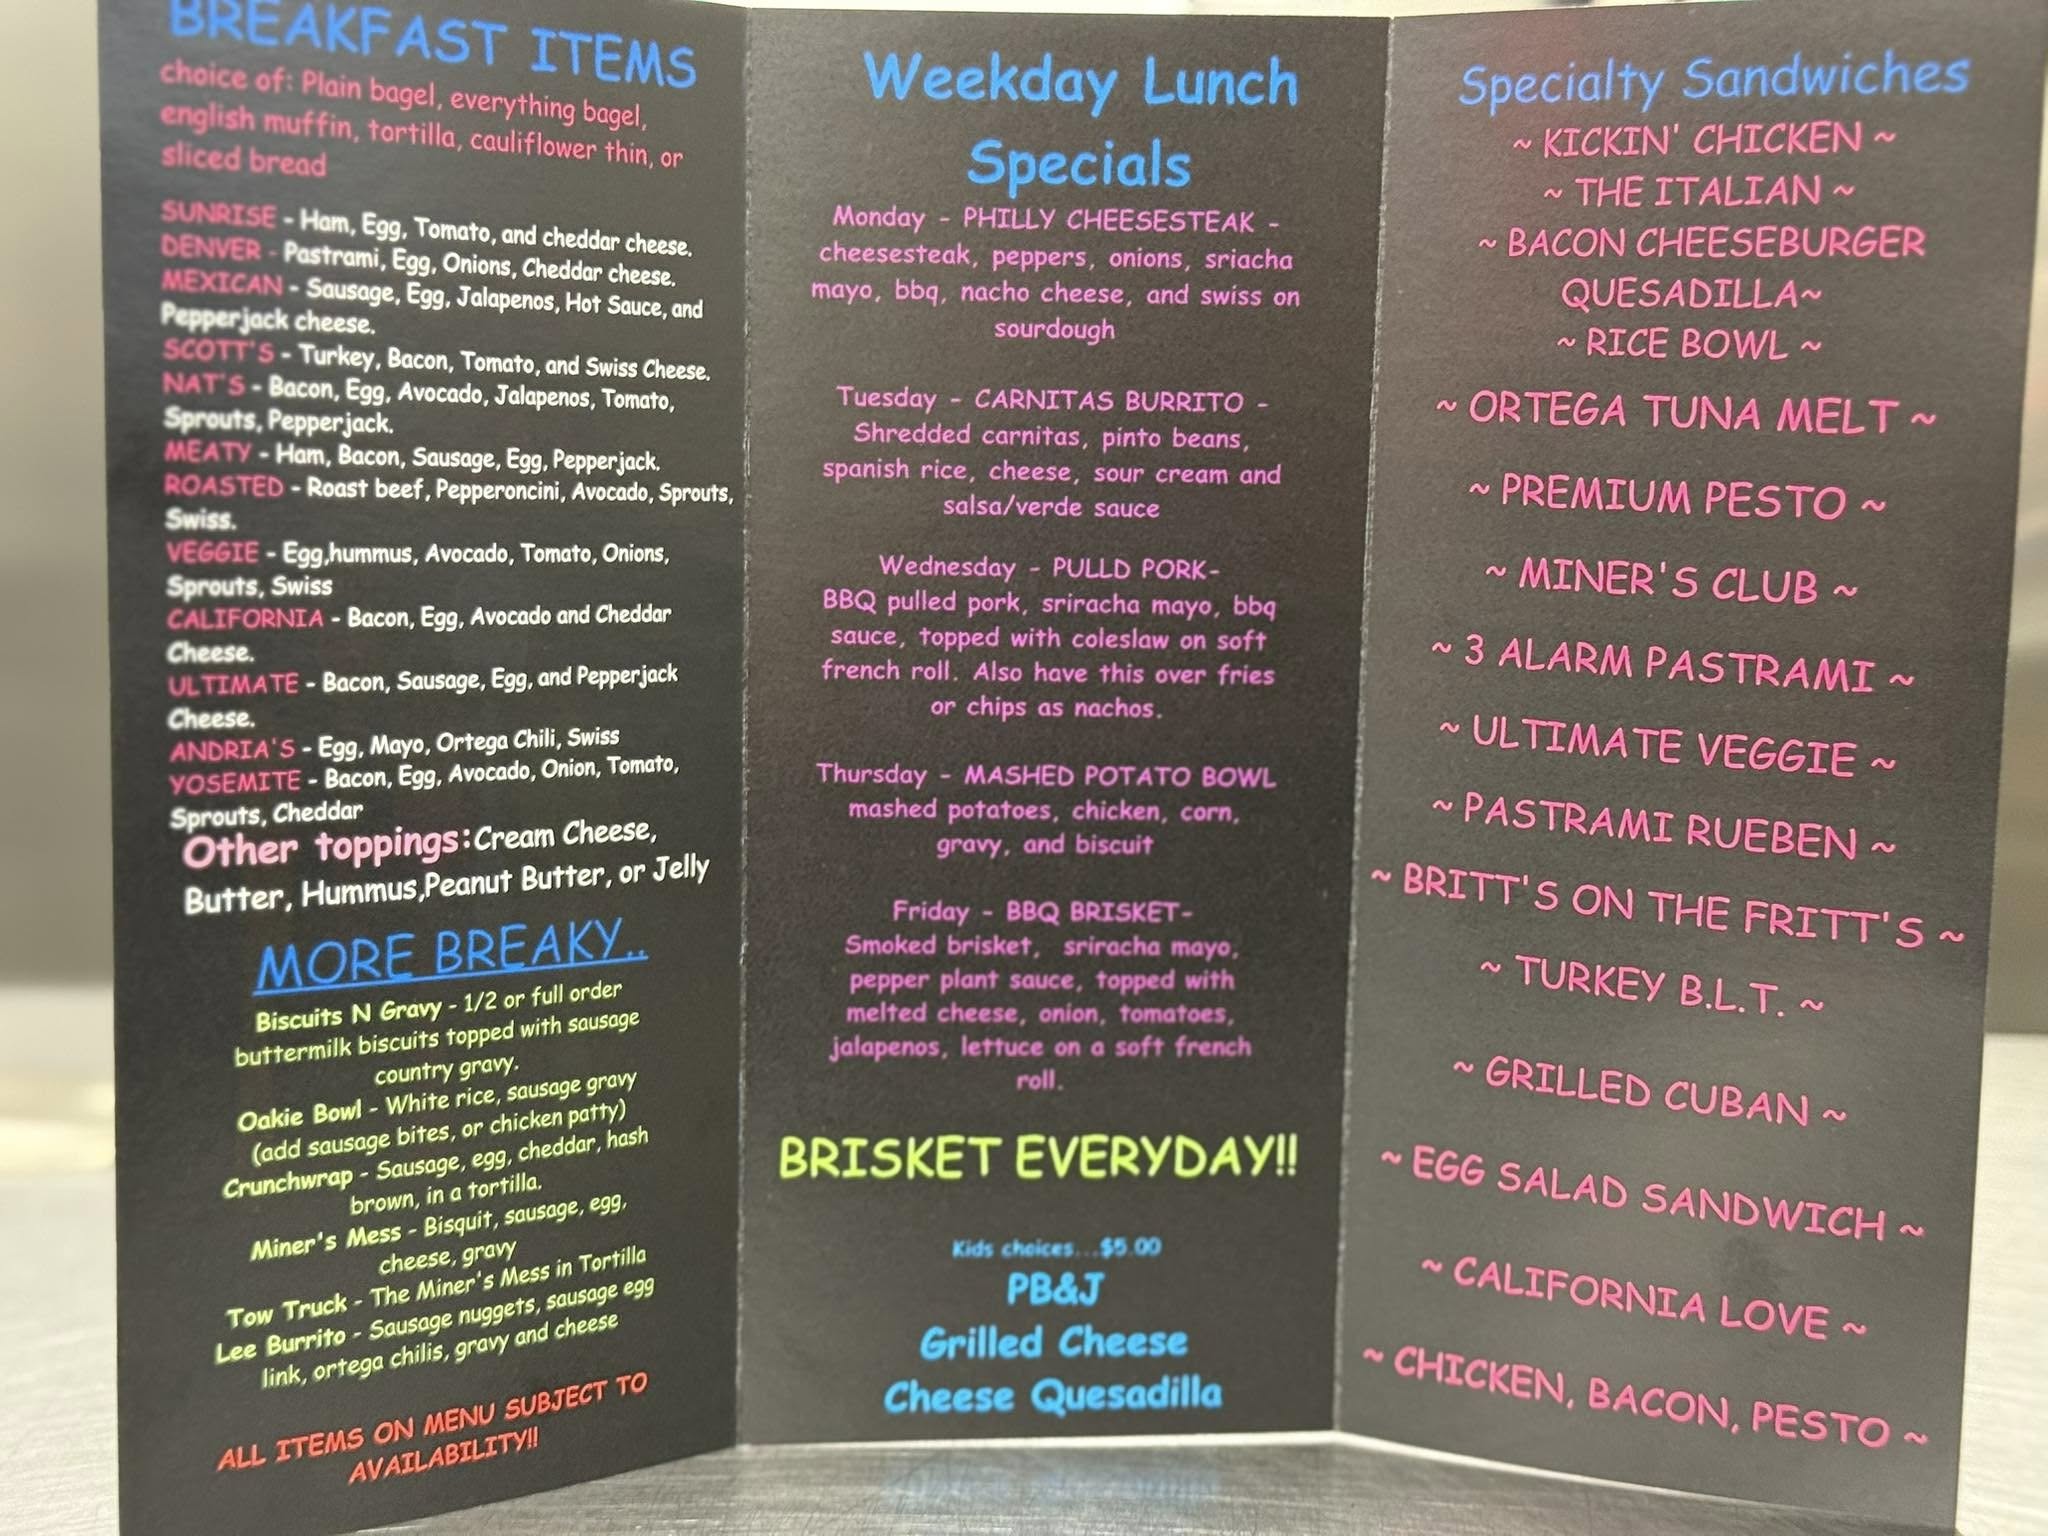 BREAKFAST ITEMS
choice of: Plain bagel, everything bagel,
english muffin, tortilla, cauliflower thin, or
sliced bread
SUNRISE - Ham, Egg, Tomato, and cheddar cheese.
DENVER - Pastrami, Egg, Onions, Cheddar cheese.
MEXICAN - Sausage, Egg, Jalapenos, Hot Sauce, and
Pepperjack cheese.
SCOTT'S - Turkey, Bacon, Tomato, and Swiss Cheese.
NAT'S - Bacon, Egg, Avocado, Jalapenos, Tomato,
Sprouts, Pepperjack.
MEATY - Ham, Bacon, Sausage, Egg, Pepperjack.
ROASTED - Roast beef, Pepperoncini, Avocado, Sprouts,
Swiss.
VEGGIE - Egg,hummus, Avocado, Tomato, Onions,
Sprouts, Swiss
CALIFORNIA - Bacon, Egg, Avocado and Cheddar
Cheese.
ULTIMATE - Bacon, Sausage, Egg, and Pepperjack
Cheese.
ANDRIA'S - Egg, Mayo, Ortega Chili, Swiss
YOSEMITE - Bacon, Egg, Avocado, Onion, Tomato,
Sprouts, Cheddar
Other toppings:Cream Cheese,
Butter, Hummus,Peanut Butter, or Jelly
MORE BREAKY..
Biscuits N Gravy - 1/2 or full order
buttermilk biscuits topped with sausage
country gravy.
Oakie Bowl - White rice, sausage gravy
(add sausage bites, or chicken patty)
Crunchwrap - Sausage, egg, cheddar, hash
brown, in a tortilla.
Miner's Mess - Bisquit, sausage, egg,
cheese, gravy
Tow Truck - The Miner's Mess in Tortilla
Lee Burrito - Sausage nuggets, sausage egg
link, ortega chilis, gravy and cheese
ALL ITEMS ON MENU SUBJECT TO
AVAILABILITY!!
Weekday Lunch
Specials
Monday - PHILLY CHEESESTEAK -
cheesesteak, peppers, onions, sriacha
mayo, bbq, nacho cheese, and swiss on
sourdough
Tuesday - CARNITAS BURRITO -
Shredded carnitas, pinto beans,
spanish rice, cheese, sour cream and
salsa/verde sauce
Wednesday - PULLD PORK-
BBQ pulled pork, sriracha mayo, bbq
sauce, topped with coleslaw on soft
french roll. Also have this over fries
or chips as nachos.
Thursday - MASHED POTATO BOWL
mashed potatoes, chicken, corn,
gravy, and biscuit
Friday - BBQ BRISKET-
Smoked brisket, sriracha mayo,
pepper plant sauce, topped with
melted cheese, onion, tomatoes,
jalapenos, lettuce on a soft french
roll.
BRISKET EVERYDAY!!
Kids choices...$5.00
PB&J
Grilled Cheese
Cheese Quesadilla
Specialty Sandwiches
~ KICKIN' CHICKEN ~
~ THE ITALIAN ~
~ BACON CHEESEBURGER
QUESADILLA~
~ RICE BOWL ~
~ ORTEGA TUNA MELT ~
~ PREMIUM PESTO ~
~ MINER'S CLUB ~
~ 3 ALARM PASTRAMI ~
~ ULTIMATE VEGGIE ~
~ PASTRAMI RUEBEN ~
~ BRITT'S ON THE FRITT'S ~
~ TURKEY B.L.T. ~
~ GRILLED CUBAN ~
~ EGG SALAD SANDWICH ~
~ CALIFORNIA LOVE ~
~ CHICKEN, BACON, PESTO ~